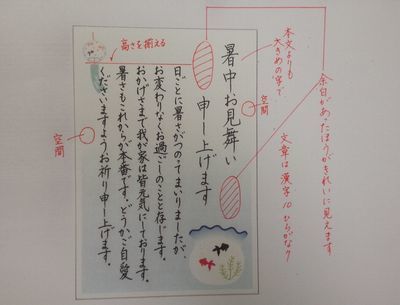 余白があったほうがきれいに見えます
本文よりも
大きめの字で
空間
文章は漢字10ひらがな7
高さを揃える
空間
暑中お見舞い
申し上げます
日ごとに暑さがつのってまいりましたが、
お変わりなくお過ごしのことと存じます。
おかげさまで我が家は皆元気にしております。
暑さもこれからが本番です。どうかご自愛
くださいますようお祈り申し上げます。